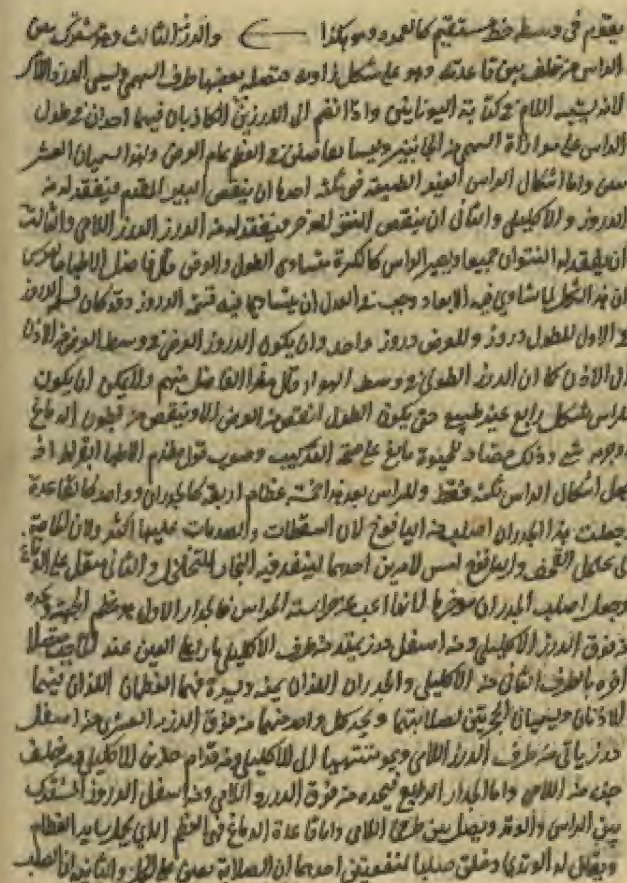 يتقدم في وسطه خط مستقيم كالعمود وهو هكذا والدرز الثالث وهو مشترك بين
الراس من خلف بين قاعدته وهو على شكل زاوية متصلة بعضها طرف السهمي ويسمى الدرز اللامي
لانه يشبه اللام في كتابة اليونانيين واذا انضم الى الدرزين الكاذبان فيهما اخذان في طول
الراس على موازاة السهم من الجانبين وليسا بغائصين في العظم تمام الغوص ولهذا يسميان القشريين
واما اشكال الراس الغير الطبيعية فهي ثلثة احدها ان ينقص النتو المقدم فيفقد له من
الدروز والاكليلي والثاني ان ينقص النتو المؤخر فيفقد له من الدرز الدرز اللامي والثالث
ان يفقد له النتوان جميعا ويصير الراس كالكرة متساوي الطول والعرض قال فاضل الاطباء جالينوس
ان هذا الشكل لما تساوى فيه الابعاد وجب في العدل ان يتساوى فيه قسمة الدروز وقد كان قسمة الدروز
في الاول للطول درز وللعرض دروز واحد وان يكون الدروز العرضي في وسط العرض من الاذن
الى الاذن كما ان الدرز الطولي في وسط الهواد قال هذا الفاضل منهم ولا يمكن ان يكون
للراس شكل رابع غير طبيعي حتى يكون الطول انقص من العرض الا وينقص من بطون الدماغ
وجرمه شي وذلك مضاد للحيوة مانع عن صحة التركيب وصوب قول مقدم الاطبا ابقراط اذ
جعل اشكال الراس ثلثة فقط وللراس بعد هذا خمسة عظام اربعة كالجدران وواحد كالقاعدة
وجعلت هذا الجدران اصلب من اليافوخ لان السقطات والصدمات عليها اكثر ولان الحاجة
الى تخلخل القحف واليافوخ امس لامرين احدهما لينفذ فيه البخار المتحلل والثاني لئلا يثقل على الدماغ
وجعل اصلب الجدران مؤخرها لانها غائب عن حراسة الحواس فالجدار الاول هو عظم الجبهة ويحده
من فوق الدرز الاكليلي ومن اسفل درز يمتد من طرف الاكليلي مارا على العين عند الحاجب متصلا
اخره بالطرف الثاني من الاكليلي والجدران اللذان يمنة ويسرة فهما العظمان اللذان فيهما
الاذنان ويسميان الحجريين لصلابتهما ويحد كل واحد منهما من فوق الدرز القشري ومن اسفل
درز ياتي من طرف الدرز اللامي ويمر منتهيا الى الاكليلي ومن قدام جزء من الاكليلي ومن خلف
جزء من اللامي واما الجدار الرابع فيحده من فوق الدرز اللامي ومن اسفل الدرز المشترك
بين الراس والوتد ويصل بين طرفي اللامي واما قاعدة الدماغ فهو العظم الذي يحمل ساير العظام
ويقال له الوتدي وخلق صلبا لمنفعتين احدهما ان الصلابة تعين على الحمل والثانية ان الصلب